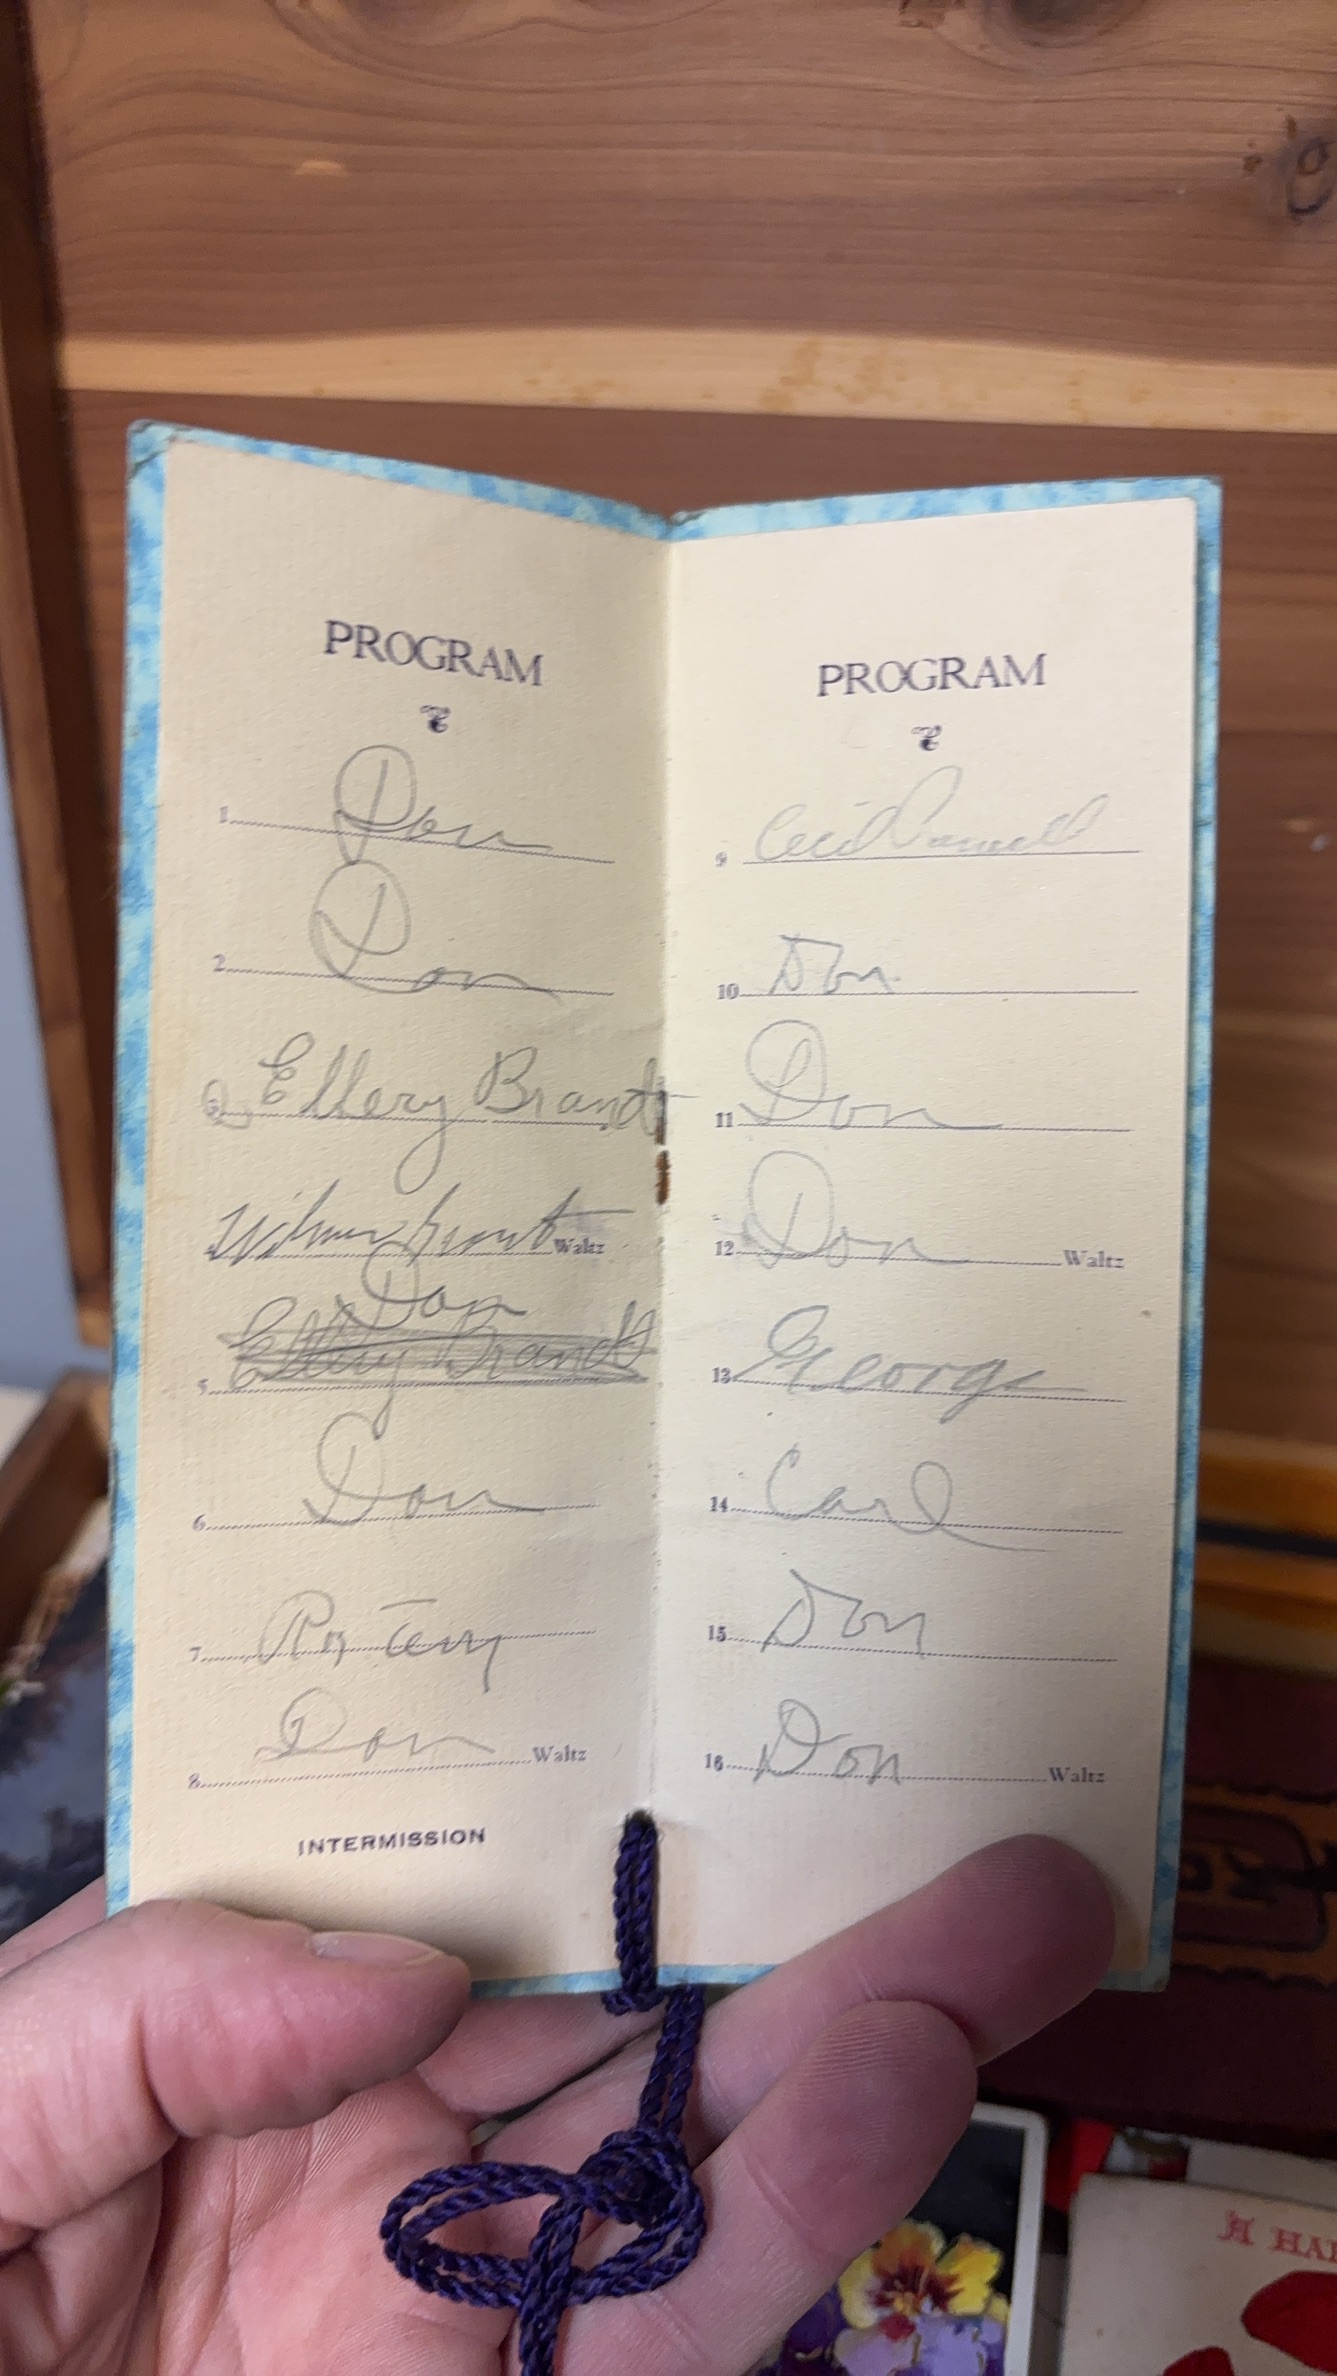 PROGRAM
1 Don
2 Don
3 Ellery Brandt
Wilmer Waltz
Don
5 Ellery Brandt
6 Don
7 Terry
8 Don Waltz
INTERMISSION
PROGRAM
9 Cecil
10 Don
11 Don
12 Don Waltz
13 George
14 Carl
15 Don
16 Don Waltz
A HA